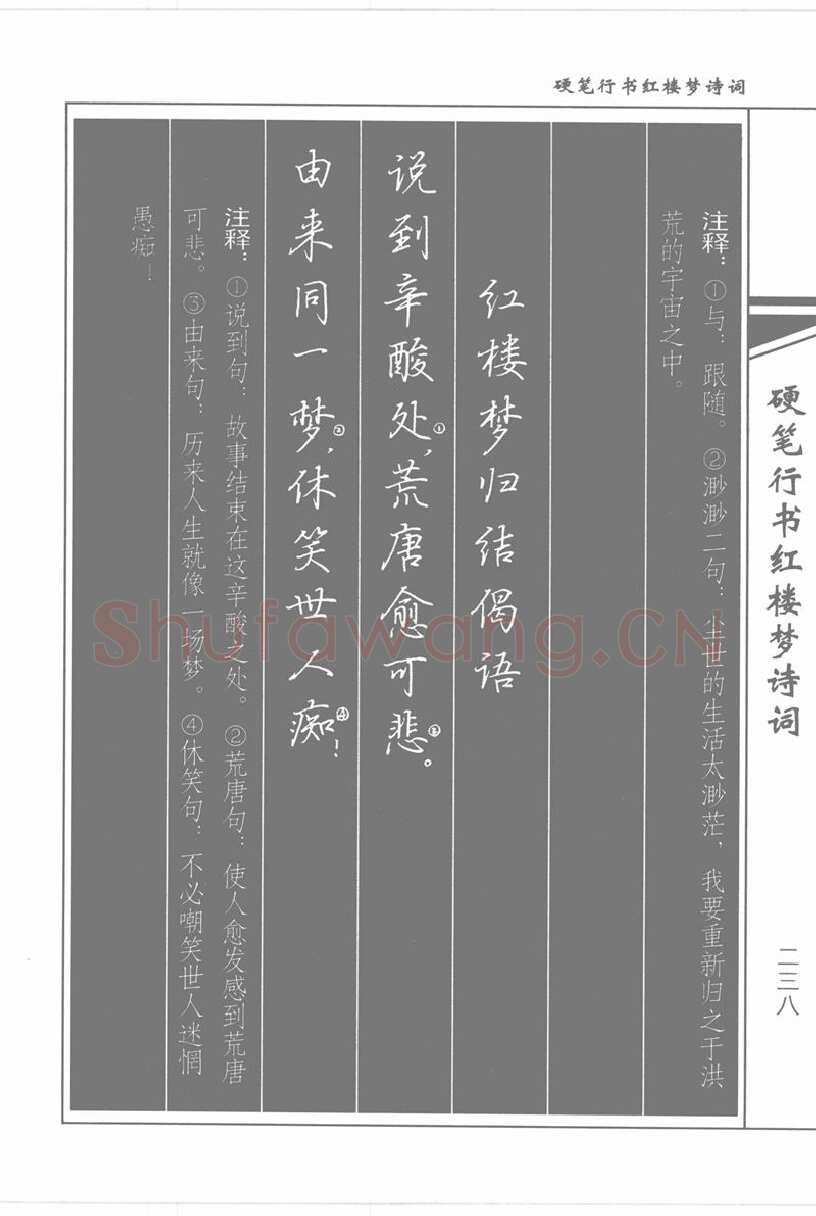 硬笔行书红楼梦诗词
注释：①与：跟随。②渺渺二句：尘世的生活太渺茫，我要重新归之于洪
荒的宇宙之中。
红楼梦归结偈语
说到辛酸处①，荒唐愈可悲③。
由来同一梦②，休笑世人痴④！
注释：①说到句：故事结束在这辛酸之处。②荒唐句：使人愈发感到荒唐
可悲。③由来句：历来人生就像一场梦。④休笑句：不必嘲笑世人迷惘
愚痴！
硬笔行书红楼梦诗词
二三八
Shufawang.CN